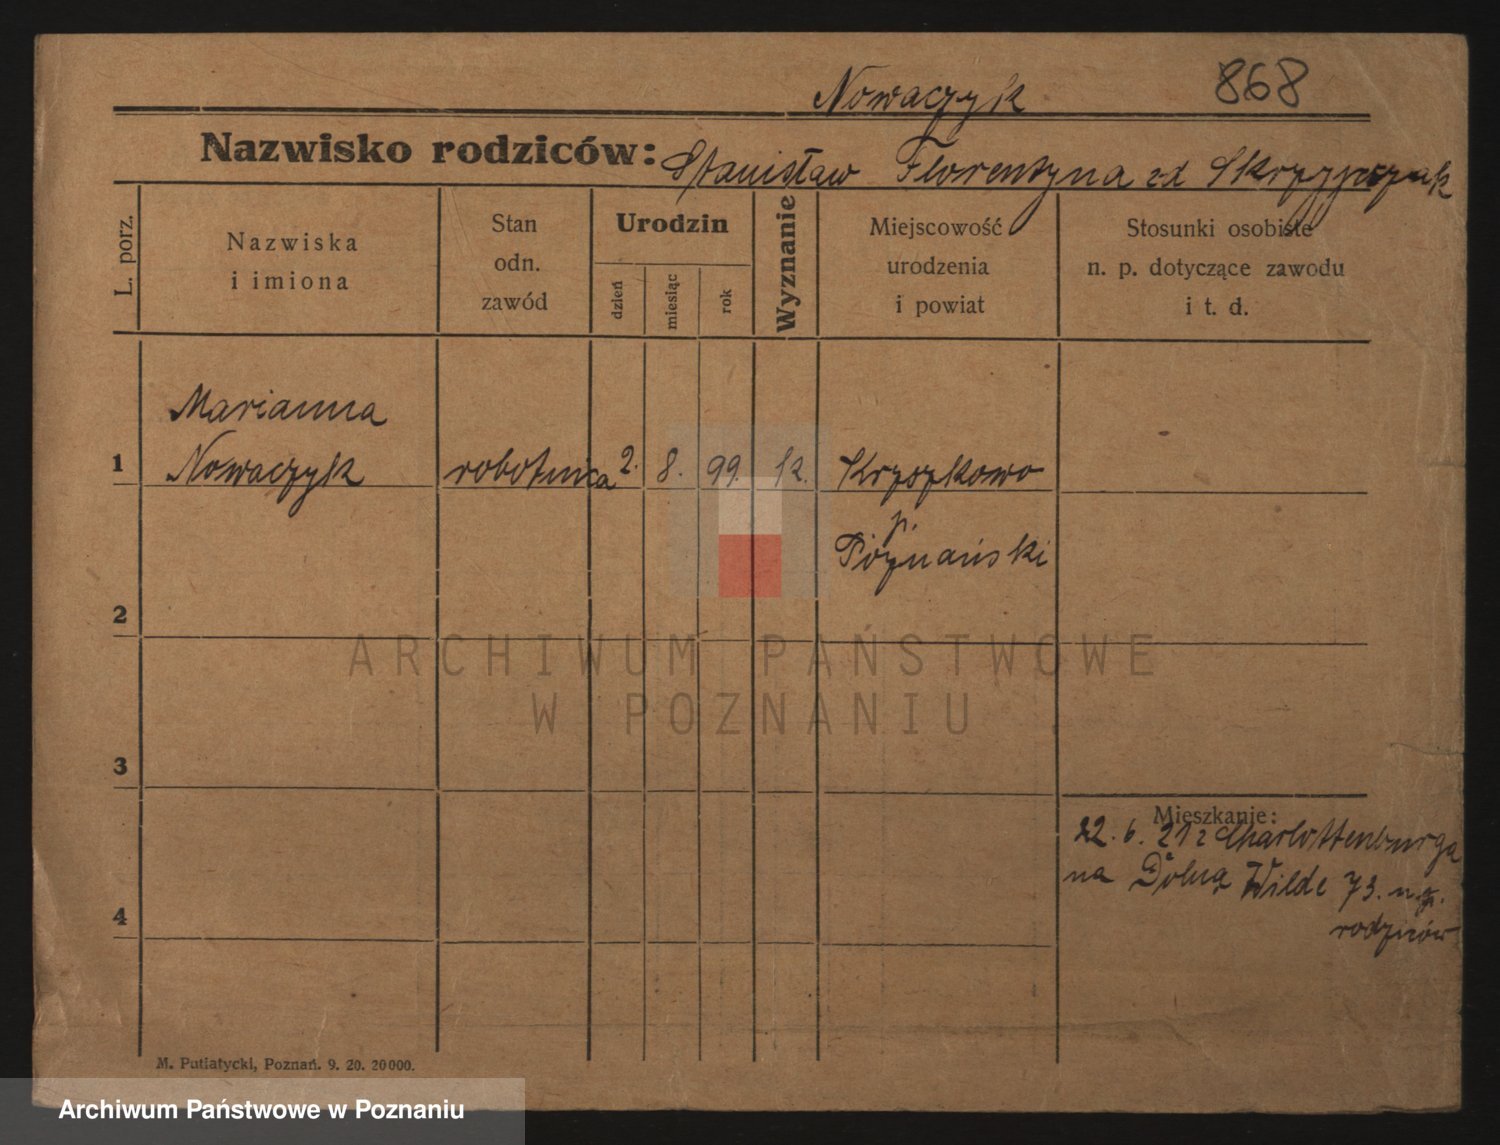 Nowaczyk 868
Nazwisko rodziców: Stanisław Florentyna zd Skrzypczak
L. porz.
Nazwiska
i imiona
Stan
odn.
zawód
Urodzin
dzień
miesiąc
rok
Wyznanie
Miejscowość
urodzenia
i powiat
Stosunki osobiste
n. p. dotyczące zawodu
i t. d.
Marianna
1 Nowaczyk robotnica 2. 8. 99. k. Krzyszkowo
p.
Poznański
2
ARCHIWUM PAŃSTWOWE
W POZNANIU
3
Mieszkanie:
22. 6. 21 z Charlottenburga
na Dolną Wildę 73. u
rodziców
4
M. Putiatycki, Poznań. 9. 20. 20000.
Archiwum Państwowe w Poznaniu